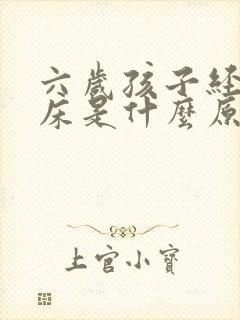 六歲孩子經
床是什麼原
上官小寶